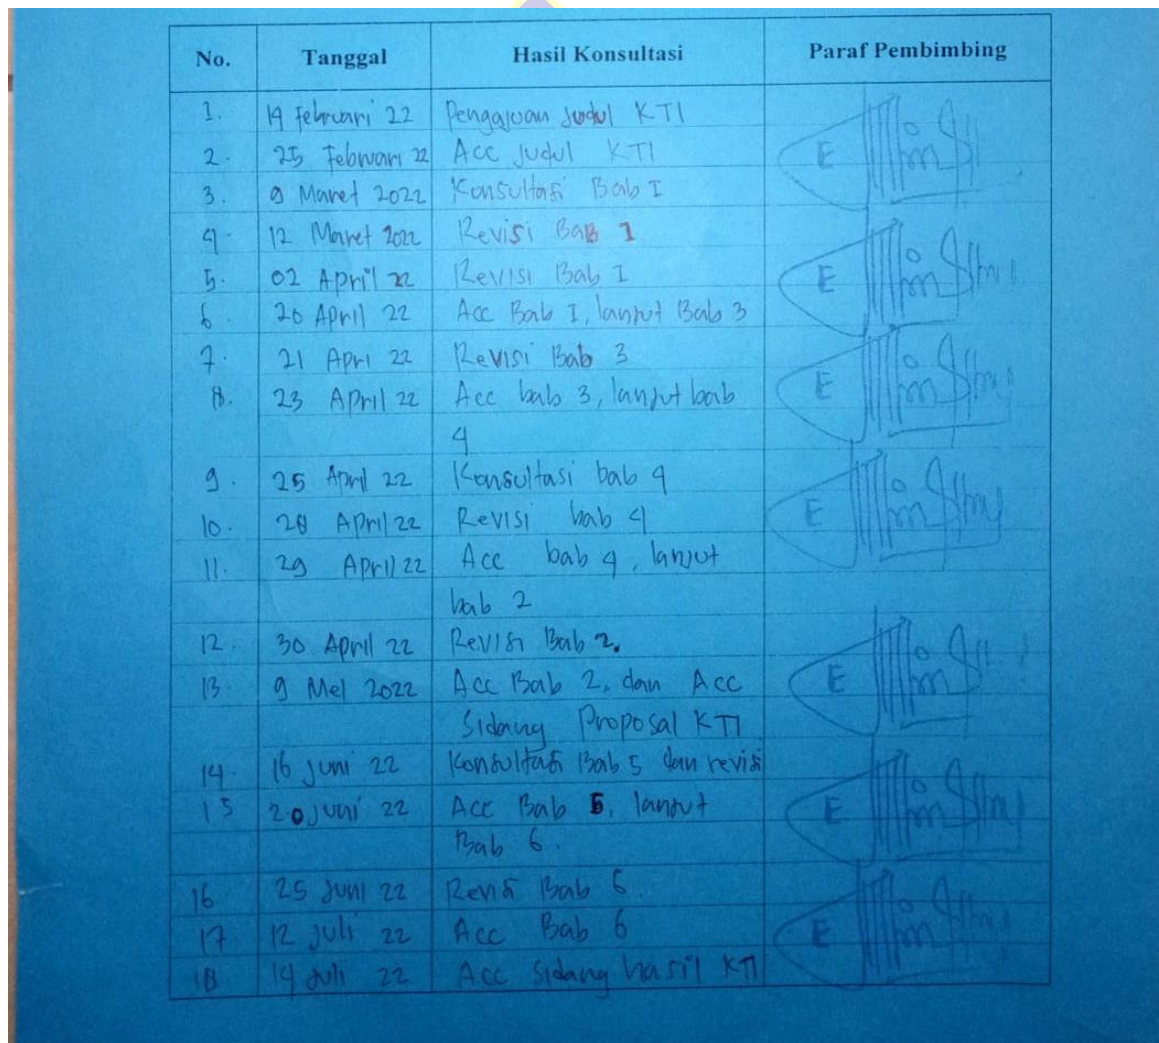 No. Tanggal Hasil Konsultasi Paraf Pembimbing
1. 19 Februari 22 Pengajuan Judul KTI
2. 25 Februari 22 Acc Judul KTI
3. 9 Maret 2022 Konsultasi Bab I
4. 12 Maret 2022 Revisi Bab 1
5. 02 April 22 Revisi Bab I
6. 20 April 22 Acc Bab I, lanjut Bab 3
7. 21 Apri 22 Revisi Bab 3
8. 23 April 22 Acc bab 3, lanjut bab
4
9. 25 April 22 Konsultasi bab 4
10. 28 April 22 Revisi bab 4
11. 29 April 22 Acc bab 4, lanjut
bab 2
12. 30 April 22 Revisi Bab 2.
13. 9 Mei 2022 Acc Bab 2, dan Acc
Sidang Proposal KTI
14. 16 Juni 22 Konsultasi Bab 5 dan revisi
15 20 Juni 22 Acc Bab 5, lanjut
Bab 6.
16 25 Juni 22 Revisi Bab 6.
17. 12 Juli 22 Acc Bab 6
18 14 Juli 22 Acc Sidang hasil KTI